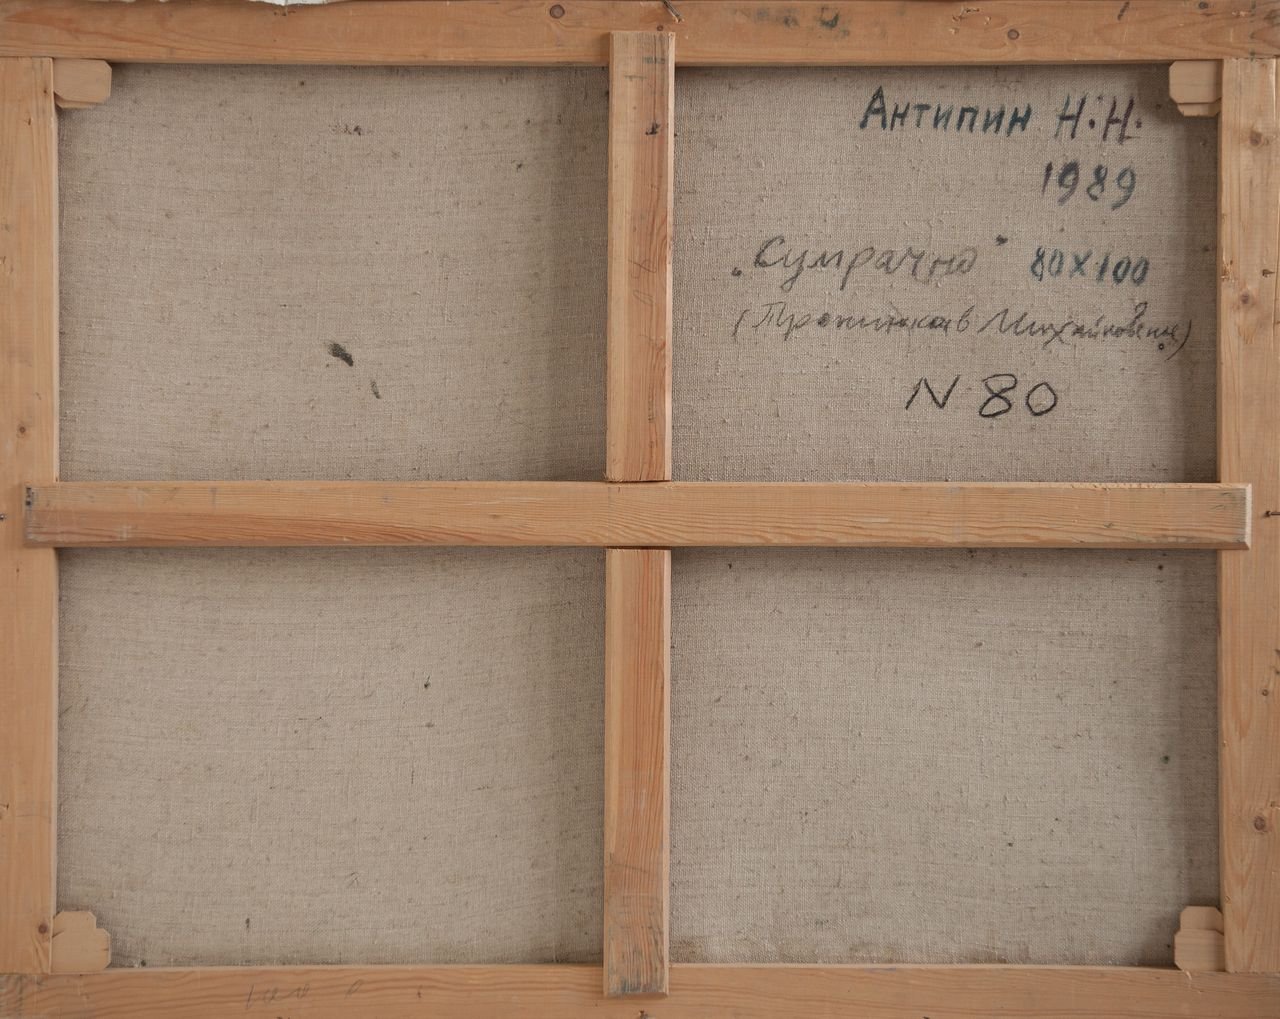 Антипин Н.Н.
1989
„Сумрачно" 80х100
(Тропинка в Михайловское)
N 80